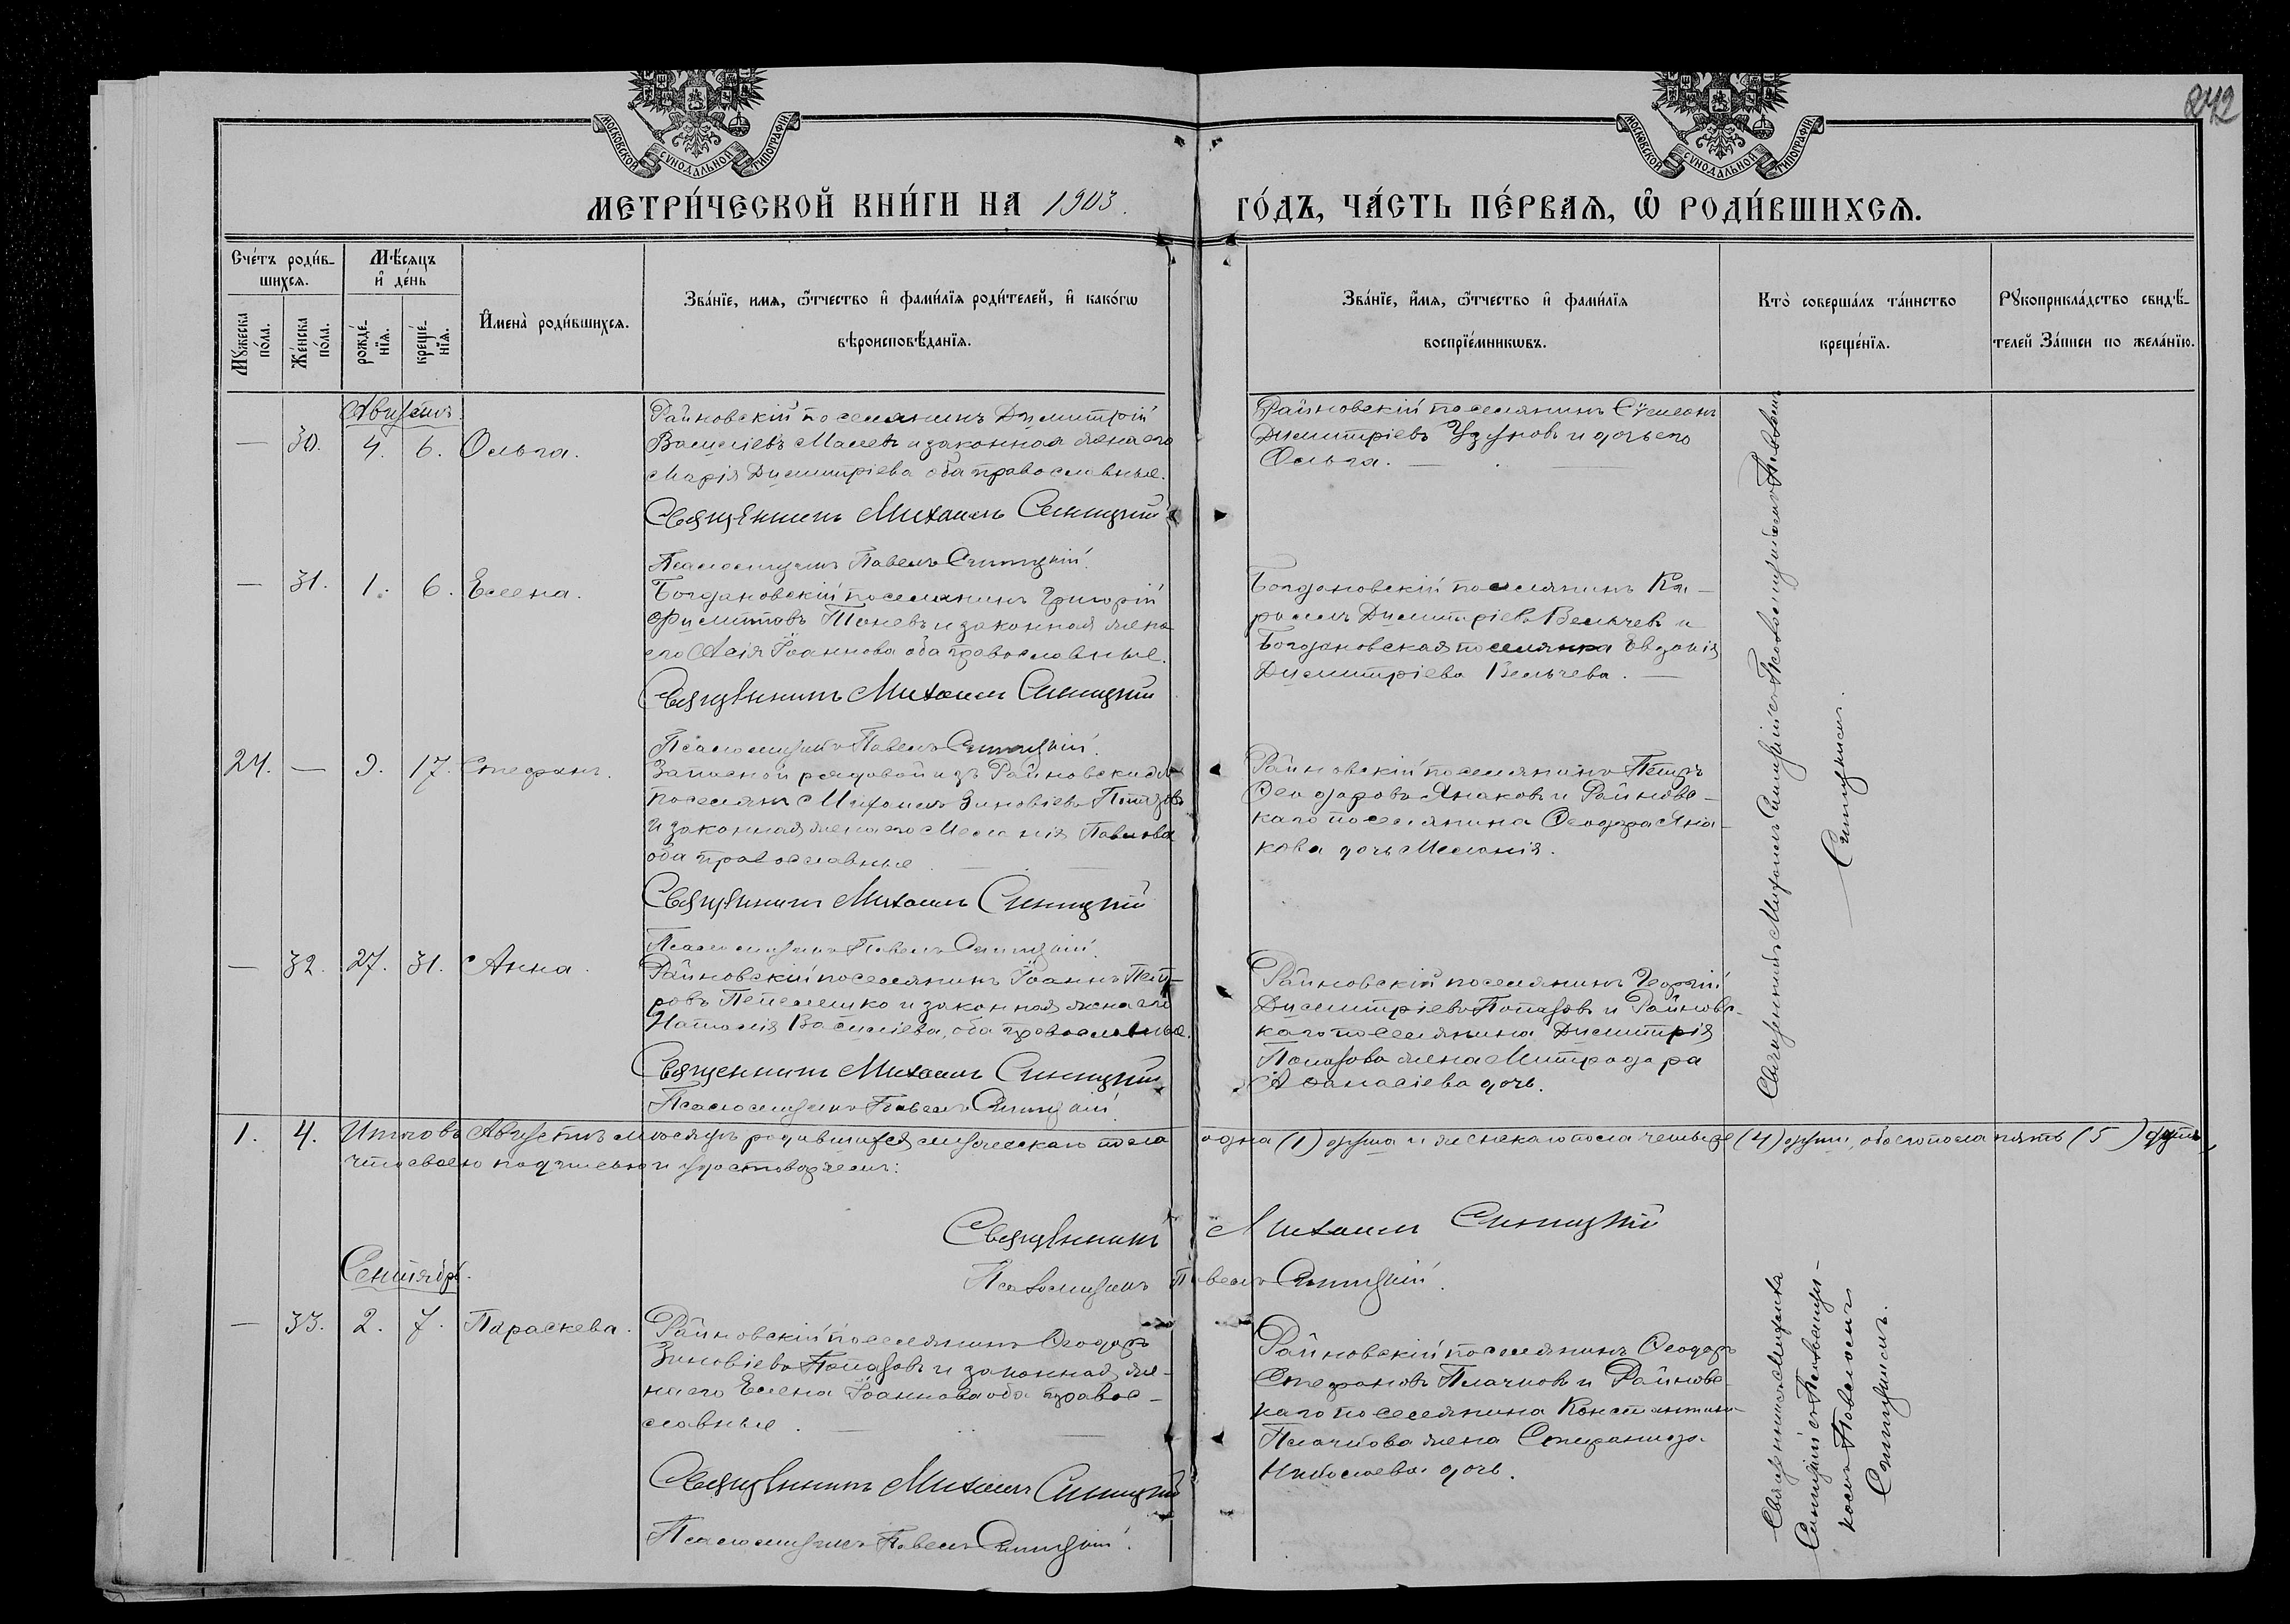 242
МОСКОВСКОЙ СУНОДАЛЬНОЙ ТИПОГРАФІИ
МОСКОВСКОЙ СУНОДАЛЬНОЙ ТИПОГРАФІИ
МЕТРИ́ЧЕСКОЙ КНИ́ГИ НА 1903.
ГО́ДЪ, ЧА́СТЬ ПЕ́РВАѦ, Ѡ РОДИ́ВШИХСѦ.
Сче́тъ роди́в-
шихсѧ.
Мꙋ́жеска по́ла.
Же́нска по́ла.
Мѣ́сѧцъ
и де́нь
рожде́-
нїѧ.
креще́-
нїѧ.
Имена̀ роди́вшихсѧ.
Зва́нїе, имѧ, ѻтчество и фами́лїѧ роди́телей, и како́гѡ
вѣроисповѣ́данїѧ.
Зва́нїе, и́мѧ, ѻтчество и фами́лїѧ
воспрїе́мникѡвъ.
Кто̀ соверша́лъ та́инство
креще́нїѧ.
Рꙋкоприкла́дство свидѣ́-
телей За́писи по жела́нїю.
Августъ.
— 30. 4. 6. Ольга.
Райновскій поселянинъ Димитрій
Василіевъ Малевъ и законная жена его
Марія Димитріева оба православные.
Священникъ Михаилъ Синицкій
Псаломщикъ Павелъ Синицкій.
Райновскій поселянинъ Сѵмеонъ
Димитріевъ Узуновъ и дочь его
Ольга. —
— 31. 1. 6. Елена.
Богдановскій поселянинъ Григорій
Филиповъ Тоневъ и законная жена
его Асія Іоаннова оба православные.
Священникъ Михаилъ Синицкій
Псаломщикъ Павелъ Синицкій.
Богдановскій поселянинъ Ки-
рилъ Димитріевъ Вельчевъ и
Богдановская поселянка Евдокія
Димитріева Вельчева. —
24. — 9. 17. Стефанъ.
Запасной рядовой изъ Райновскихъ
поселянъ Михаилъ Зиновіевъ
и законная жена его Меланія Павлова
оба православные
Священникъ Михаилъ Синицкій
Псаломщикъ Павелъ Синицкій.
Райновскій поселянинъ Петръ
Ѳеодоровъ Янаковъ и Райновс-
каго поселянина Ѳеодора Яна-
кова дочь Меланія.
— 32. 27. 31. Анна.
Райновскій поселянинъ Іоаннъ Пет-
ровъ Пепелешко и законная жена его
Наталія Василіева, оба православные.
Священникъ Михаилъ Синицкій
Псаломщикъ Павелъ Синицкій.
Райновскій поселянинъ Георгій
Димитріевъ Попазовъ и Райновс-
каго поселянина Димитрія
Попазова жена Митродора
Аѳанасіева дочь.
Священникъ Михаилъ Синицкій съ Псаломщикомъ Павломъ
Синицкимъ.
1. 4. Итого въ Августѣ мѣсяцѣ родившихся мужескаго пола одна (1) душа и женскаго пола четыре (4) души, обоего пола пять (5) душъ,
что своею подписью и удостовѣряемъ:
Священникъ Михаилъ Синицкій
Псаломщикъ Павелъ Синицкій.
Сентябрь.
— 33. 2. 7. Параскева.
Райновскій поселянинъ Ѳеодоръ
Зиновіевъ Попазовъ и законная же-
на его Елена Іоаннова оба правос-
лавные. —
Священникъ Михаилъ Синицкій
Псаломщикъ Павелъ Синицкій.
Райновскій поселянинъ Ѳеодоръ
Стефановъ Плачковъ и Райновс-
каго поселянина Константина
Плачкова жена Стефанида
Николаева дочь.
Священникъ Михаилъ
Синицкій съ Псаломщи-
комъ Павломъ
Синицкимъ.